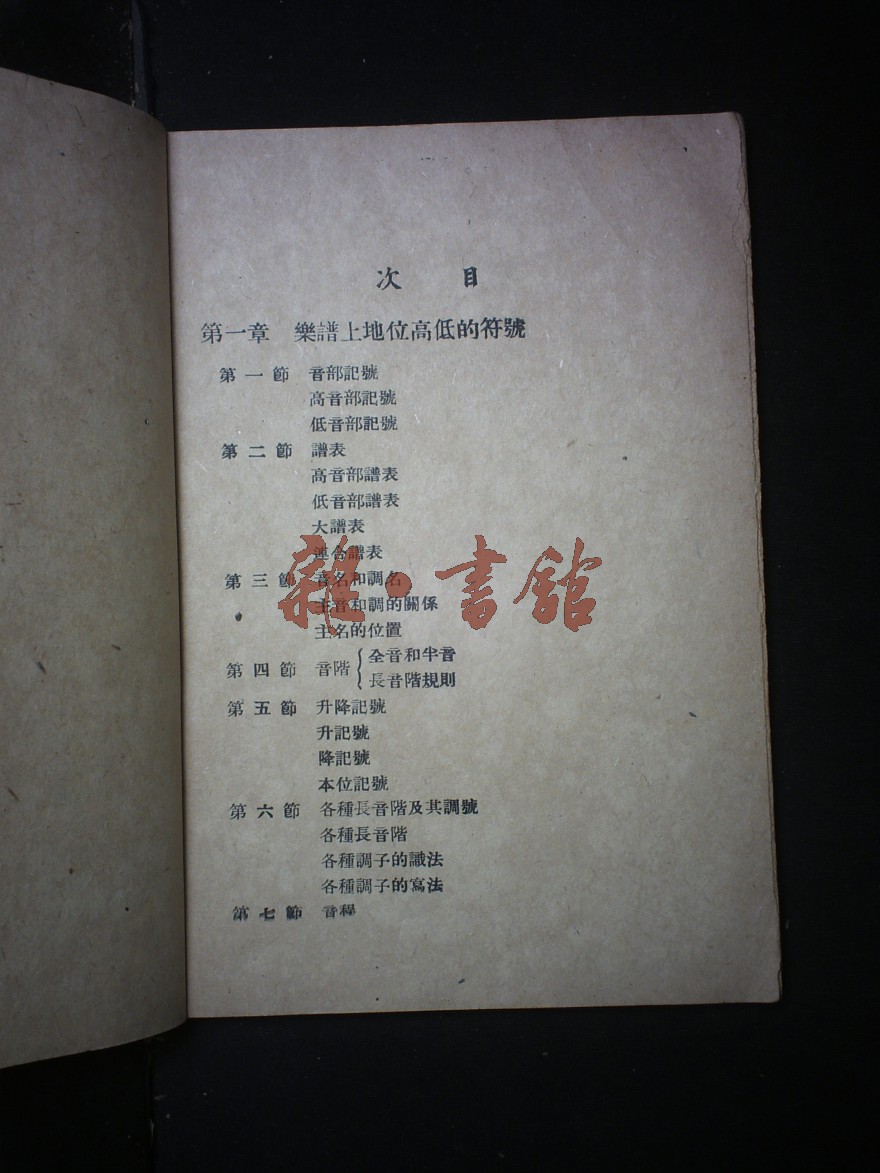 次 目
第一章 樂譜上地位高低的符號
第一節 音部記號
高音部記號
低音部記號
第二節 譜表
高音部譜表
低音部譜表
大譜表
連合譜表
第三節 音名和調名
主音和調的關係
主名的位置
第四節 音階 { 全音和半音
長音階規則
第五節 升降記號
升記號
降記號
本位記號
第六節 各種長音階及其調號
各種長音階
各種調子的識法
各種調子的寫法
第七節 音程
雜·書館